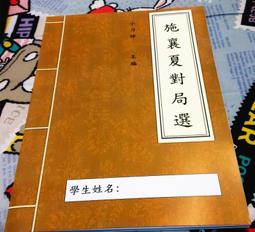 施襄夏對局選
主編
學生姓名:
HIP